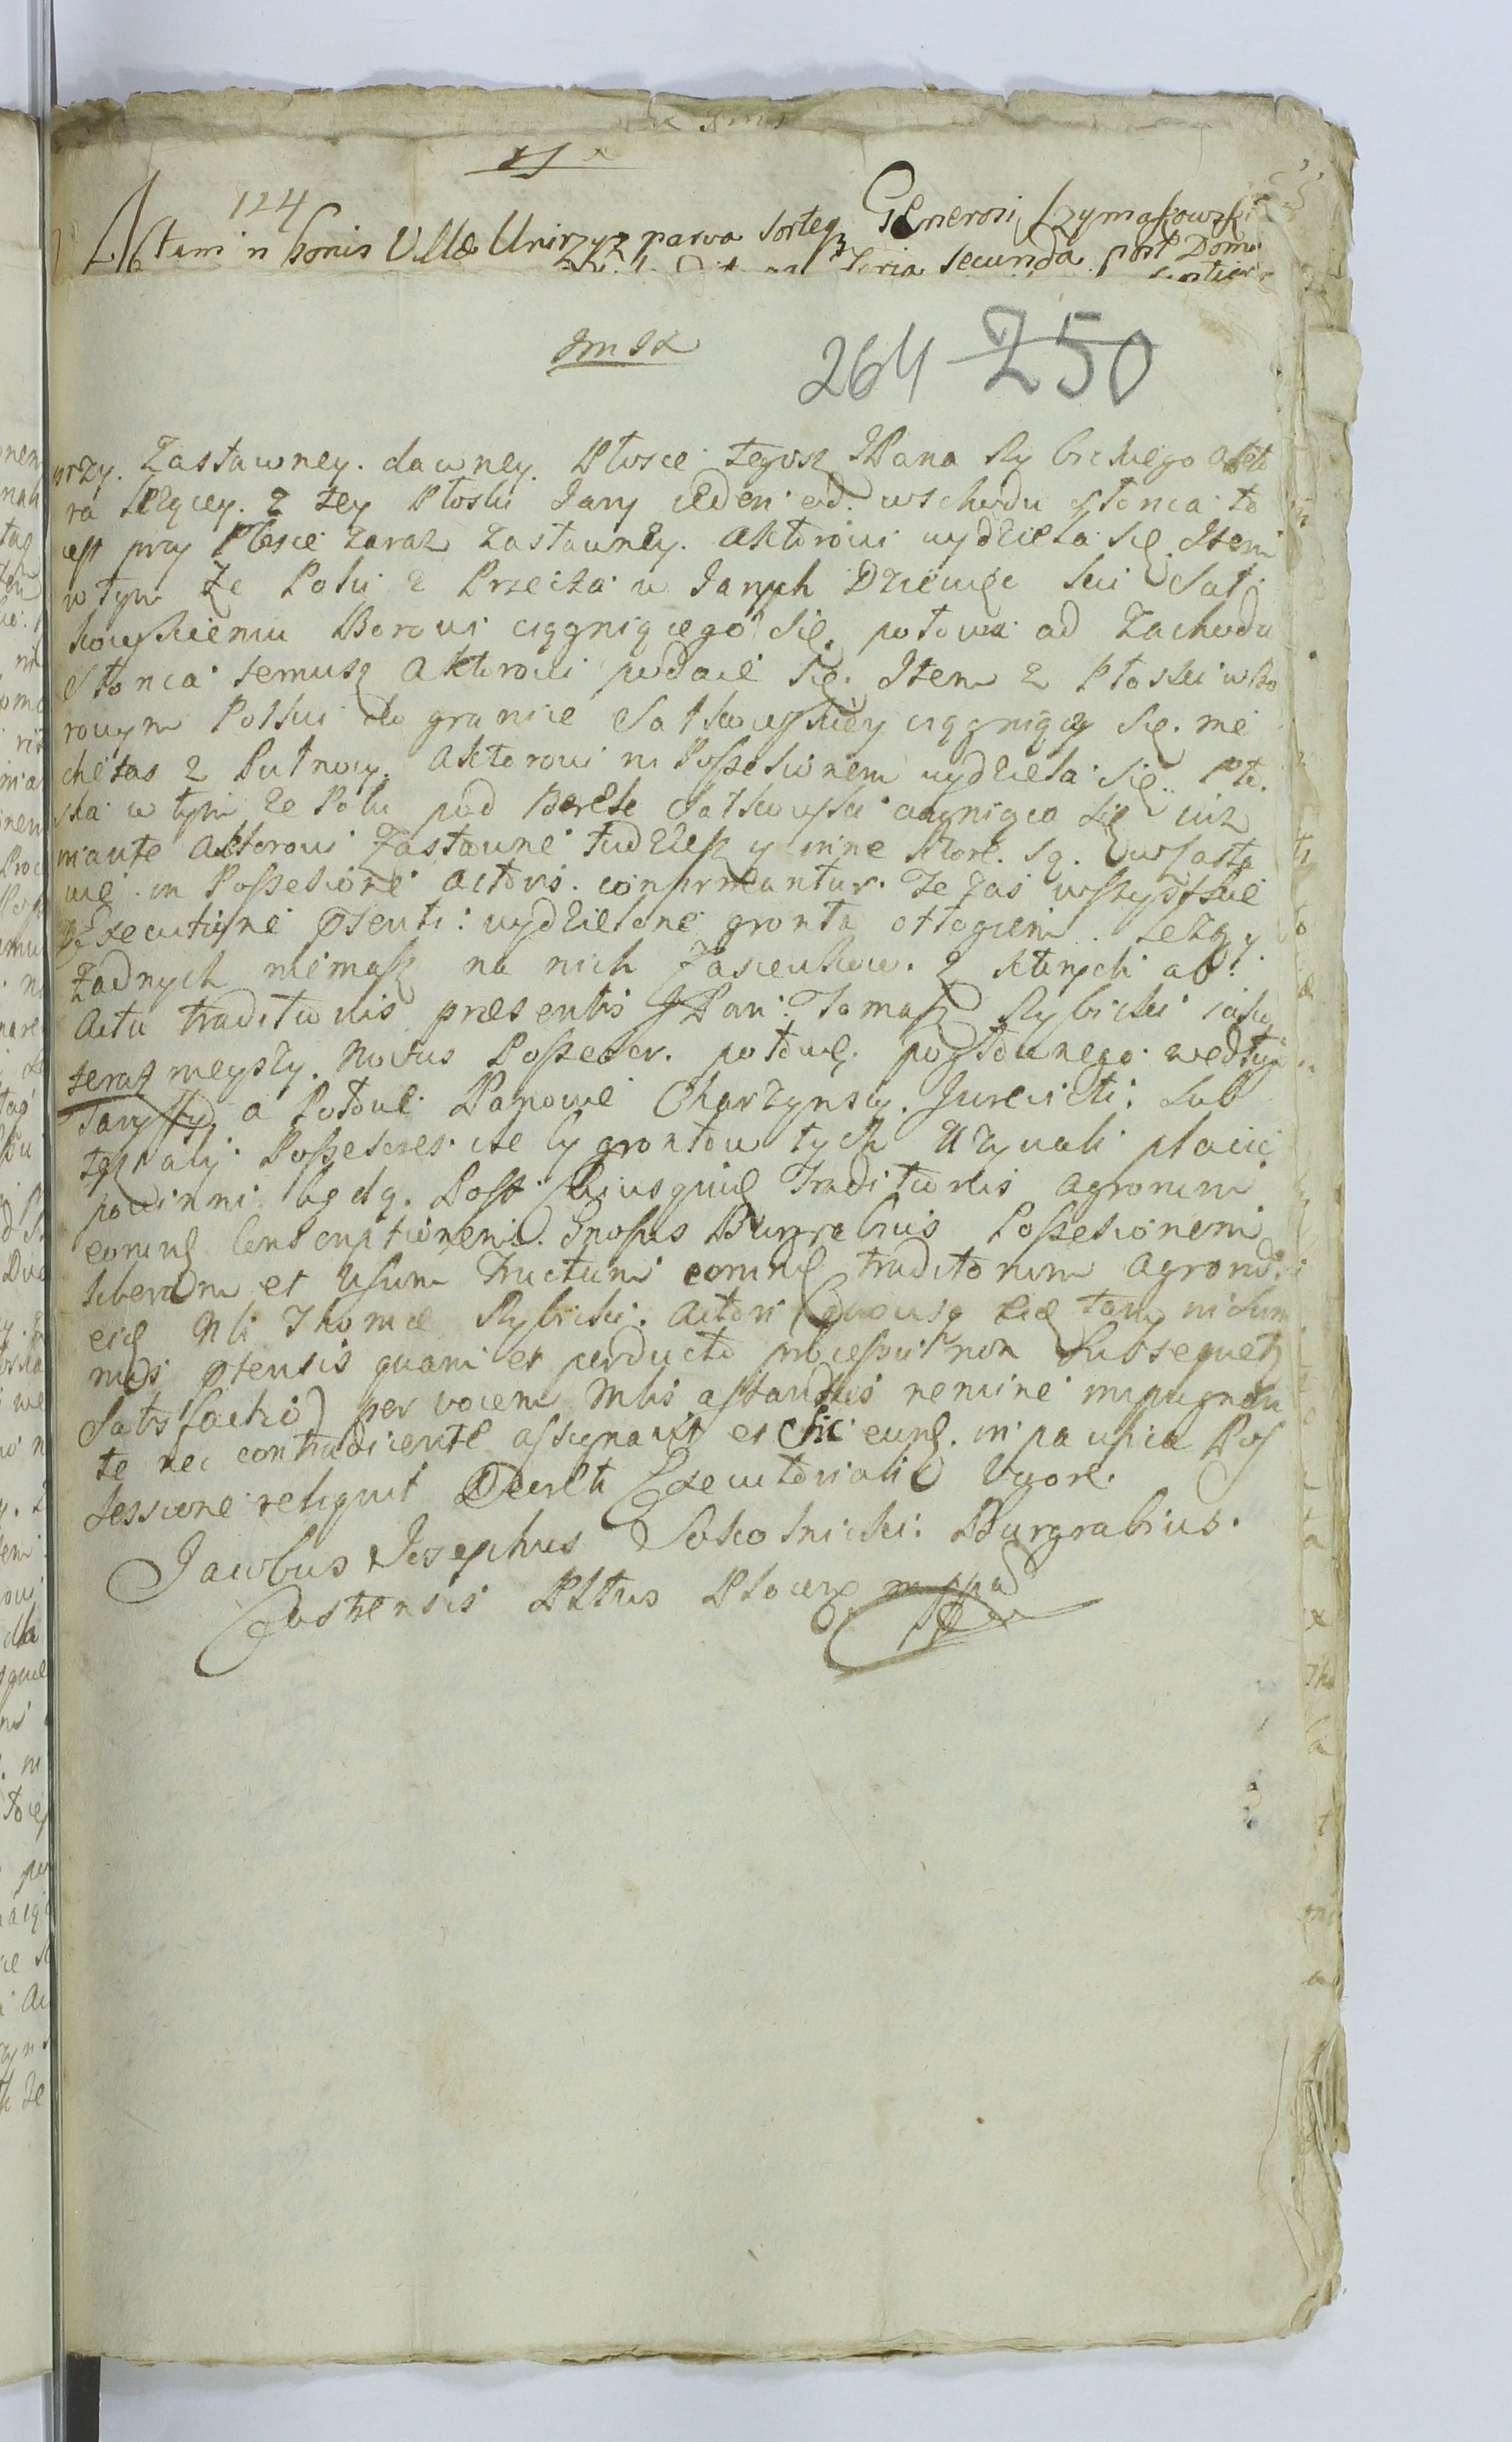 124
Actum in bonis Villæ Unirzyz parva sorteq3 Generosi Szymakowski
Feria secunda post Dom
264 250
przy Zastawney dawney Płosce tegosz JPana Rybickiego Akto
ra lezącey z tey Płoski Jary ieden od wschodu słonca to
iest przy Płosce zaraz zastawney Aktorowi wydziela się Item
w tym ze Polu z Przecza w Janych Dziewięc ku Sał
kowskiemu Borowi ciągniącego się połowa od Zachodu
Słonca temusz Aktorowi podaie się. Item z Płoski w Bo
rowym Polku do granice Sałkowskiey ciągniącey się mie
Aktorowi in Possesionem wydziela się Pło
ska w tym ze Polu pod Sałkowski ciągniąca się iuz
Aktorowi Zastawne tudziesz y inne ktore są
in Possesione Actoris confirmantur. Ze zas wszystkie
wydzielone gronta odłogiem lezą y
Zadnych niemasz na nich Zasiewkow z ktorych ab
actu traditionis præsentis JPan Tomasz Rybicki iako
teraznieyszy novus Possessor połowę pogłownego według
Taryffy, a Połowe Panowie Charzynscy Jurevicti lub
Possesores ile by grontow tych Uzywali płacic
powinni będą. Post Cuiusquidem Traditionis agrorum
eorumq Conscriptionem Gnosus Burgrabius Possesionem
liberam et Usum Fructum eorumq traditorum agrorum
eidem Nli Thomæ Rybicki Actori (quousq eidem tam in sum
mis ptensis quam et perducto processu non Subsequetur
Satisfactio) per vocem Mlis astantis nemine impugnan
te nec contradicente assignavit et sic eundem in pacifica Pos
sessione reliquit Decreti Executorialis vigore.
Jacobus Josephus Sokolnicki Burgrabius
Castrensis Pltus Plocen mppa